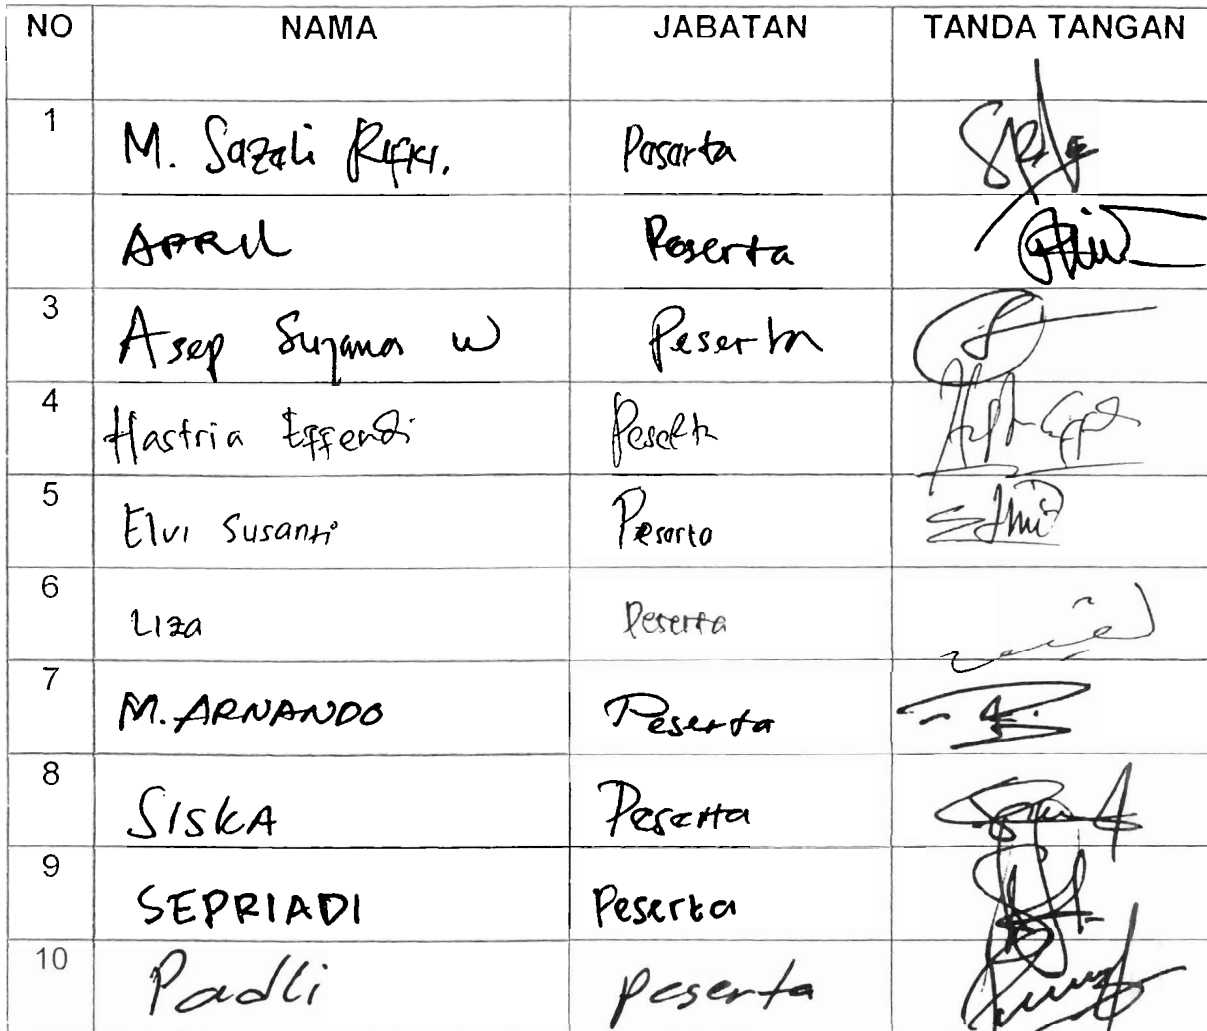 NO NAMA JABATAN TANDA TANGAN
1 M. Sazali Rifki. Peserta
APRIL Peserta
3 Asep Suryana W Peserta
4 Hastria Effendi Peserta
5 Elvi Susanti Peserta
6 Liza Peserta
7 M. ARNANDO Peserta
8 SISKA Peserta
9 SEPRIADI Peserta
10 Padli peserta